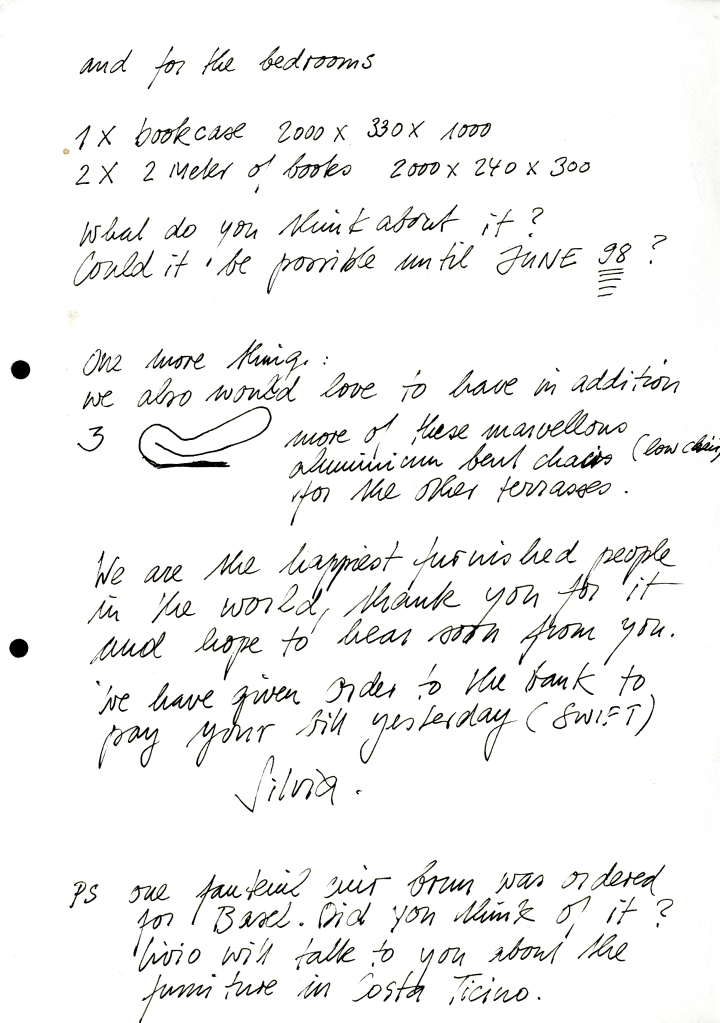 and for the bedrooms
1 X bookcase 2000 x 330 x 1000
2 X 2 Meter of books 2000 x 240 x 300
What do you think about it ?
Could it be possible until JUNE 98 ?
One more thing :
we also would love to have in addition
3 more of these marvellous
aluminium bent chairs (low chair
for the other terrasses .
We are the happiest furnished people
in the world, thank you for it
and hope to hear soon from you.
We have given order to the bank to
pay your bill yesterday ( SWIFT )
Silvia .
PS one fauteuil cuir brun was ordered
for Basel. Did you think of it ?
Livio will talk to you about the
furniture in Costa Ticino .